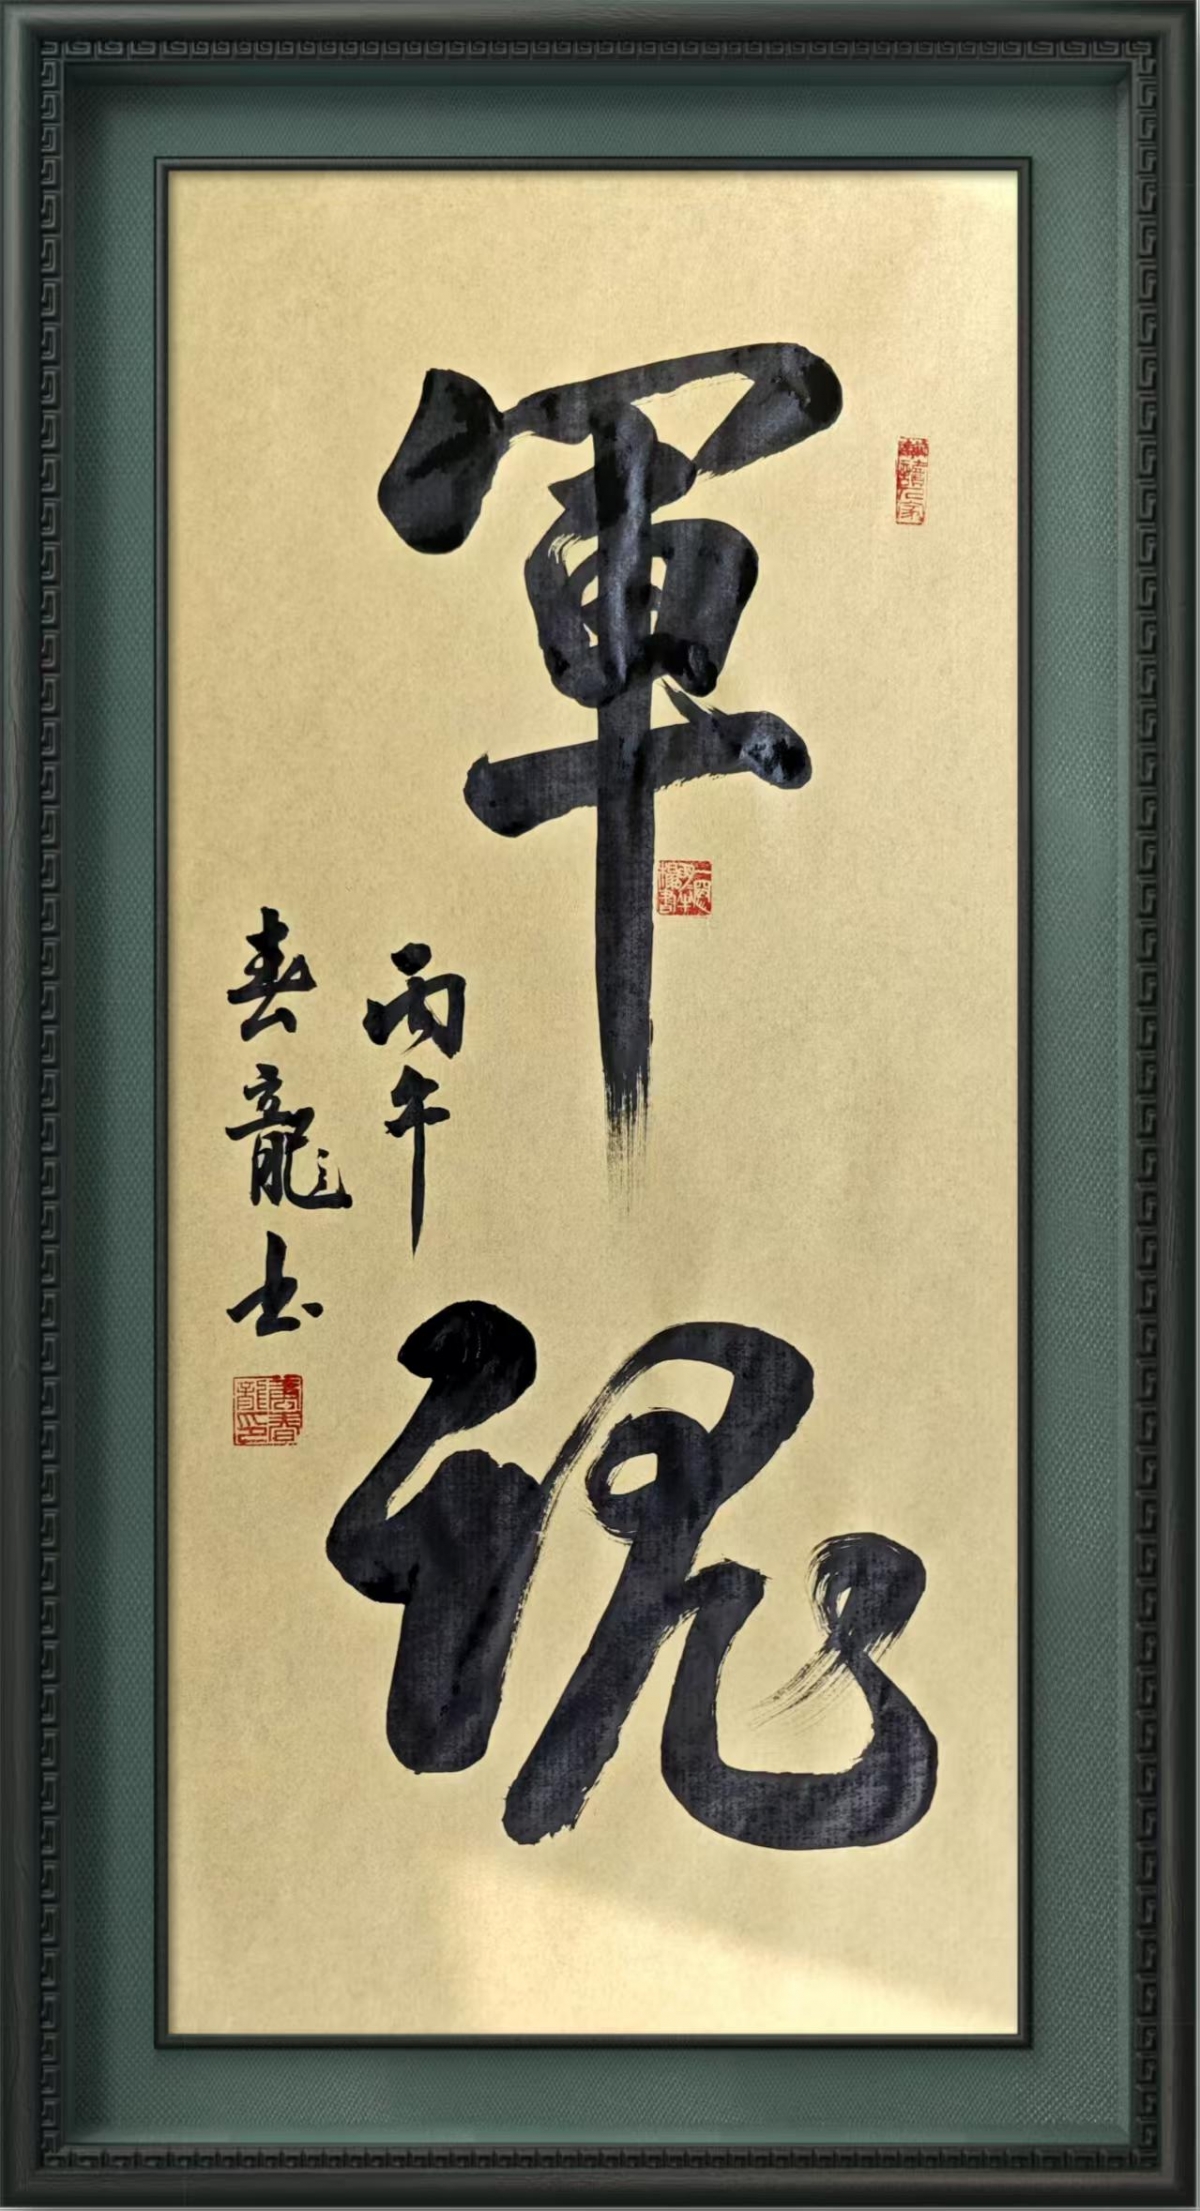 軍魂
丙午
春龍书